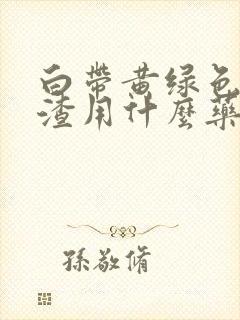 白带黄绿色
渣用什麼藥
孫敬脩